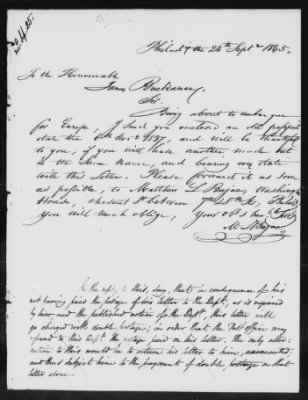 Philad'a the 24th Sept. 1845.
To the Honourable
James Buchanan,
Sir,
Being about to embark
for Europe, I send you enclosed an old passport
date the 1837, and will be thankful
to you, if you will have another made out
in the same name, and bearing even date
with this letter. Please forward it as soon
as possible, to Matthew L. Bevan, Washington
House, Chesnut St between 7th & 8th Sts, Philad'a
you will much oblige, Your obt Servt
M. L. Bevan
In the reply to this, say, that a consequence of his
not having paid the postage of his letter to the Dept, as is required
by law and the published notice of the Dept, this letter will
go charged with double postage; in order that the Post Office may
refund to this Dept the postage paid on his letter. The only alter-
native to this would be to return his letter to him, unanswered,
and thus subject him to the payment of double postage on that
letter alone.